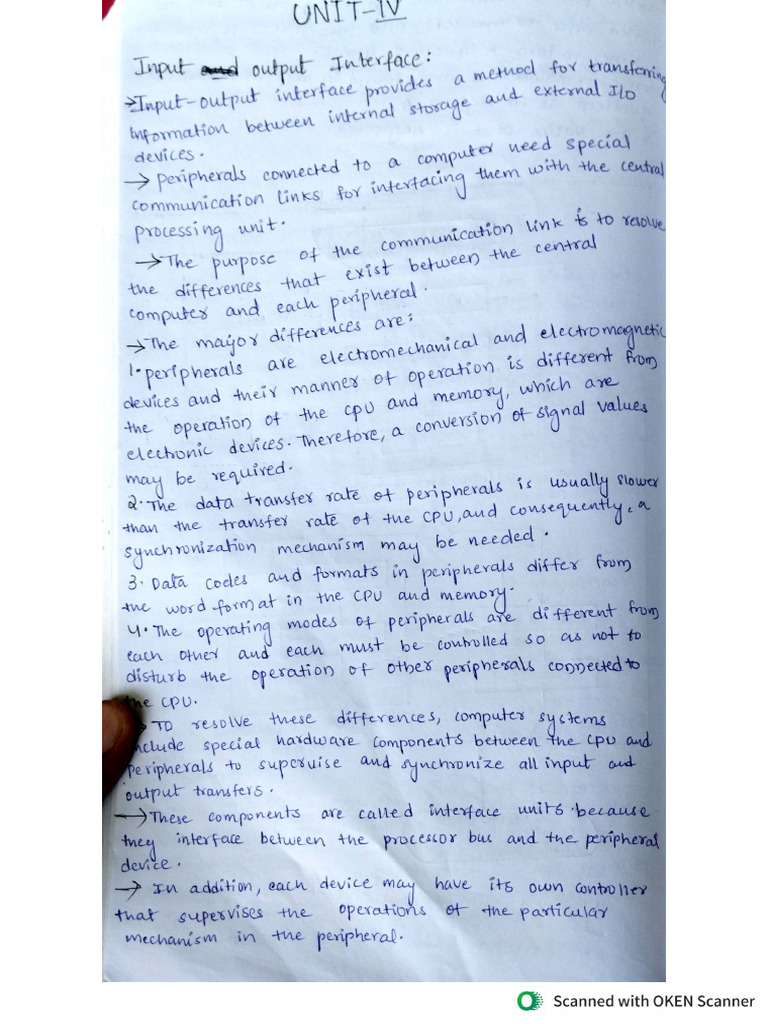 UNIT-IV
Input and output Interface:
→Input-output interface provides a method for transferring
information between internal storage and external I/O
devices.
→ peripherals connected to a computer need special
communication links for interfacing them with the central
processing unit.
→The purpose of the communication link is to resolve
the differences that exist between the central
computer and each peripheral.
→The major differences are:
1. peripherals are electromechanical and electromagnetic
devices and their manner of operation is different from
the operation of the CPU and memory, which are
electronic devices. Therefore, a conversion of signal values
may be required.
2. The data transfer rate of peripherals is usually slower
than the transfer rate of the CPU, and consequently, a
synchronization mechanism may be needed.
3. Data codes and formats in peripherals differ from
the word format in the CPU and memory.
4. The operating modes of peripherals are different from
each other and each must be controlled so as not to
disturb the operation of other peripherals connected to
the CPU.
→ To resolve these differences, computer systems
include special hardware components between the CPU and
peripherals to supervise and synchronize all input and
output transfers.
→These components are called interface units because
they interface between the processor bus and the peripheral
device.
→ In addition, each device may have its own controller
that supervises the operations of the particular
mechanism in the peripheral.
Scanned with OKEN Scanner